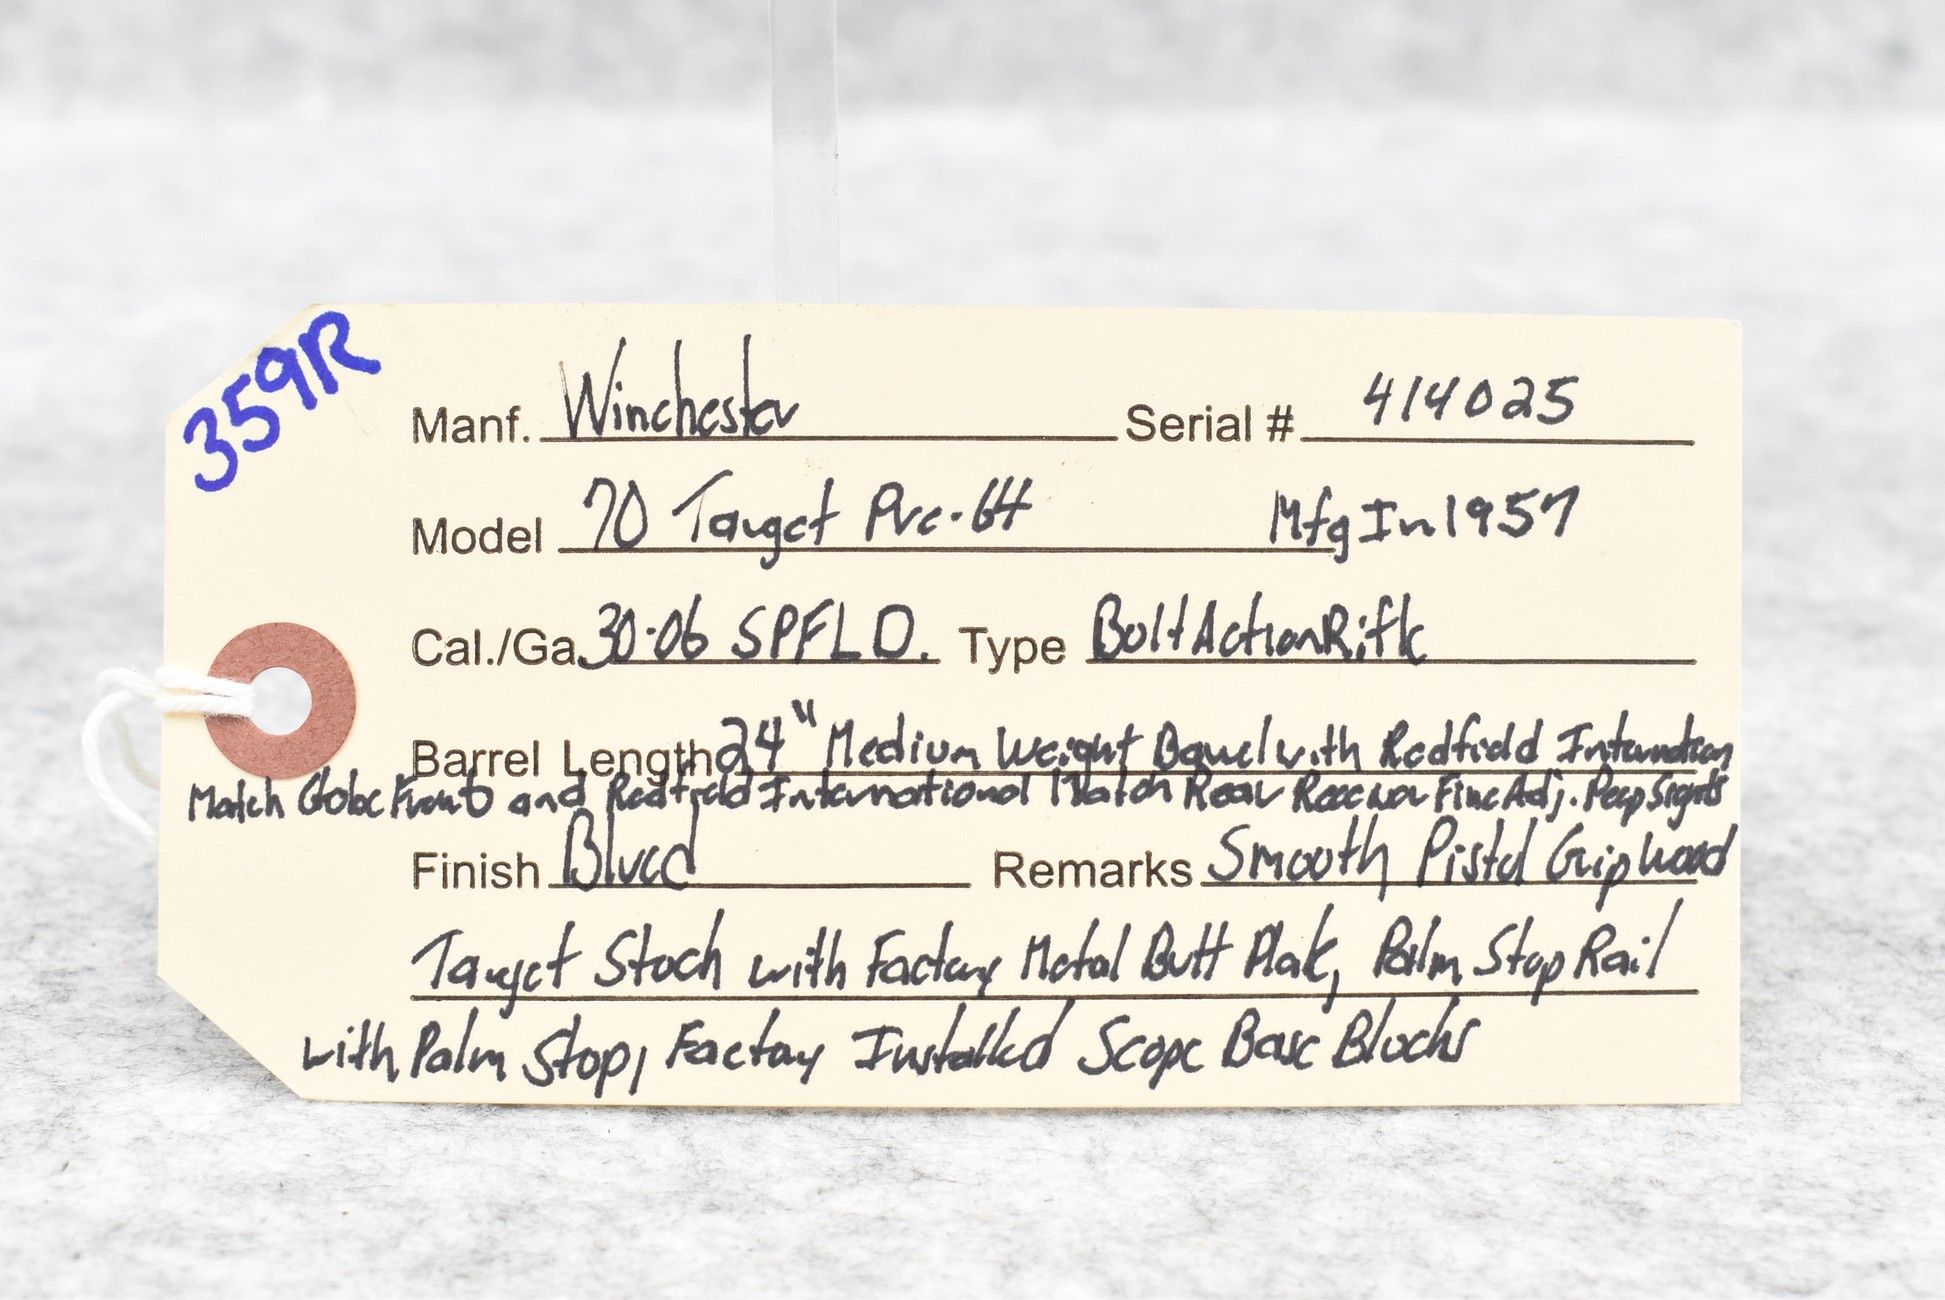 359R
Manf. Winchester Serial # 414025
Model 70 Target Pre-64 Mfg In 1957
Cal./Ga. 30-06 SPFLD. Type Bolt Action Rifle
Barrel Length 24" Medium Weight Barrel with Redfield Internation
Match Globe Front and Redfield International Match Rear Receiver Fine Adj. Peep Sights
Finish Blued Remarks Smooth Pistol Grip Wood
Target Stock with Factory Metal Butt Plate, Palm Stop Rail
with Palm Stop, Factory Installed Scope Base Blocks